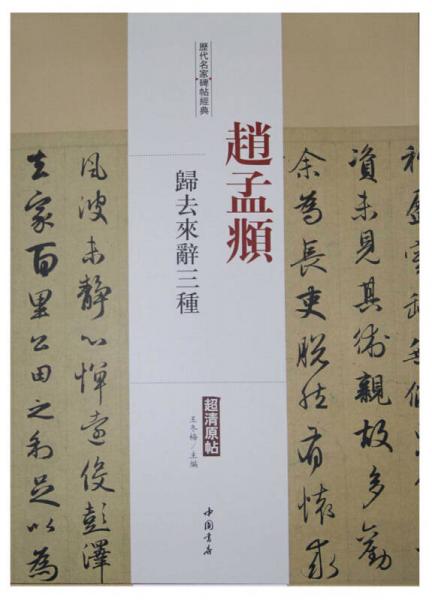 歷代名家碑帖經典
趙孟頫
歸去來辭三種
超清原帖
王冬梅／主編
中国書店
資未見其術親故多勸
余為長吏脫然有懷求
風波未靜心憚遠役彭澤
去家百里公田之利足以為